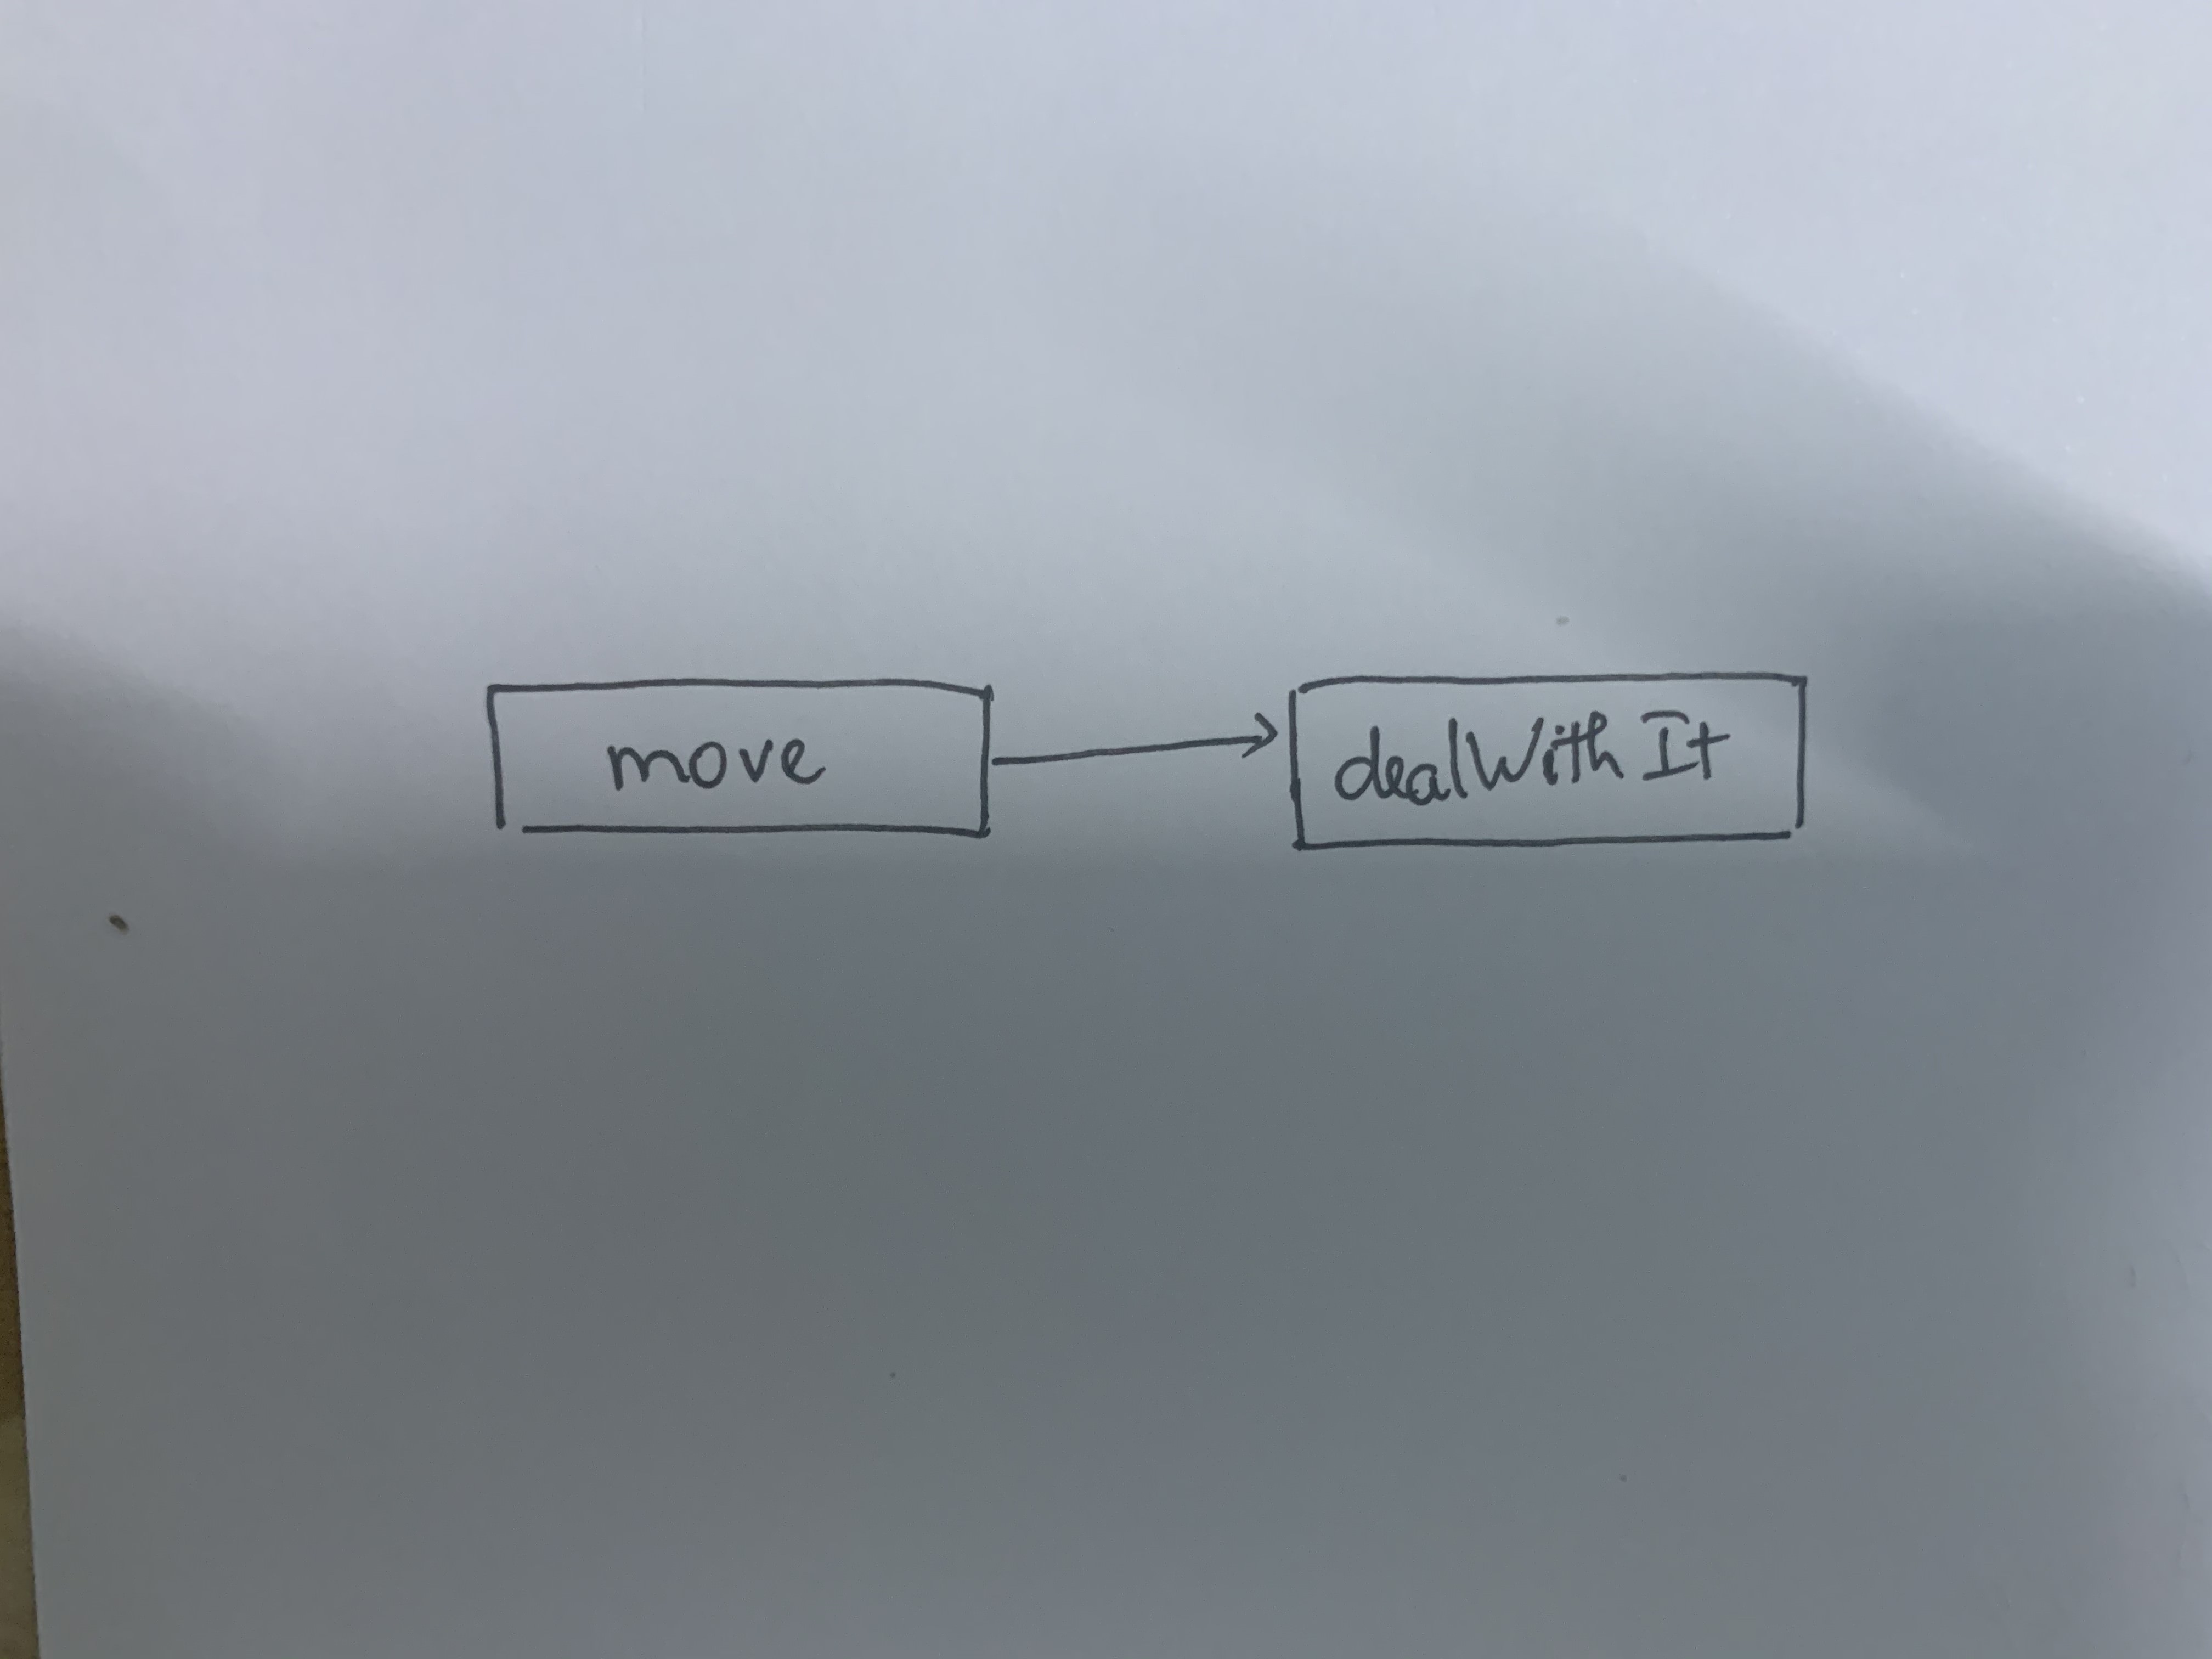 move
dealWithIt